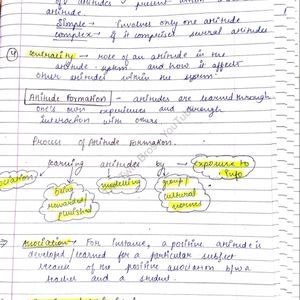 of attitudes present within a
attitude.
Simple → Involves only one attitude
complex → If it comprises several attitudes
④ Centrality → role of an attitude in the
attitude system and how it affects
other attitudes within the system.
Attitude Formation - attitudes are learned through
one's own experiences and through
interaction with others.
Process of Attitude formation.
learning attitudes by → exposure to
info.
ociation
being
rewarded or
punished
modelling
group/
cultural
norms
→ Association → For instance, a positive attitude is
developed/learned for a particular subject
because of the positive association b/w a
teacher and a student.